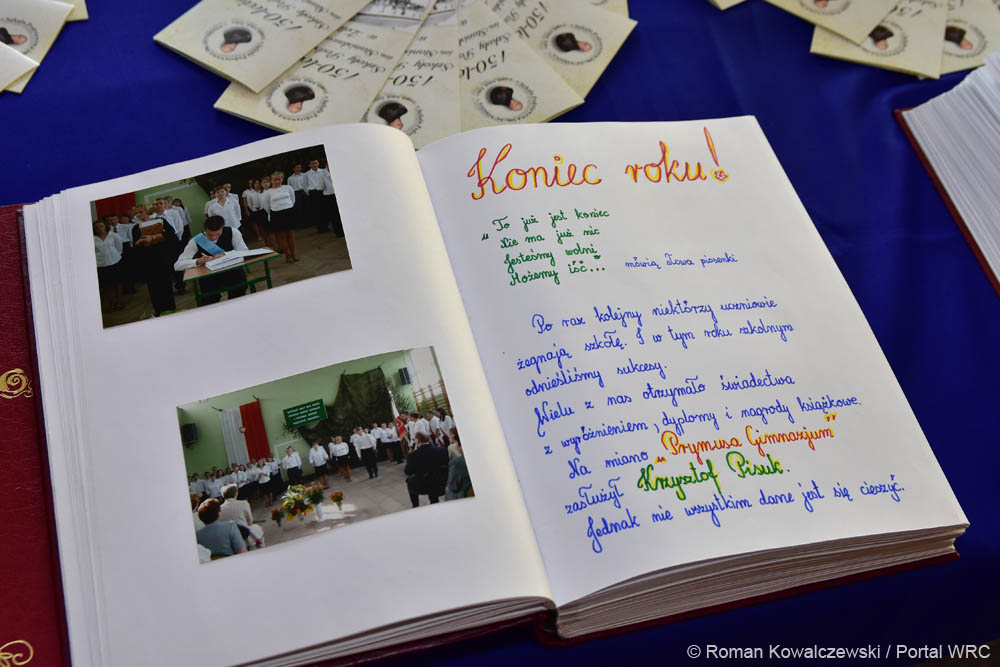 150-lecie
Szkoły
150-lecie
150-lecie
Koniec roku!
„ To już jest koniec
Nie ma już nic
Jesteśmy wolni
Możemy iść... mówią słowa piosenki
Po raz kolejny niektórzy uczniowie
żegnają szkołę. I w tym roku szkolnym
odnieśliśmy sukcesy.
Wielu z nas otrzymało świadectwa
z wyróżnieniem, dyplomy i nagrody książkowe.
Na miano „Prymusa Gimnazjum"
zasłużył Krzysztof Pisuk.
Jednak nie wszystkim dane jest się cieszyć..
© Roman Kowalczewski / Portal WRC